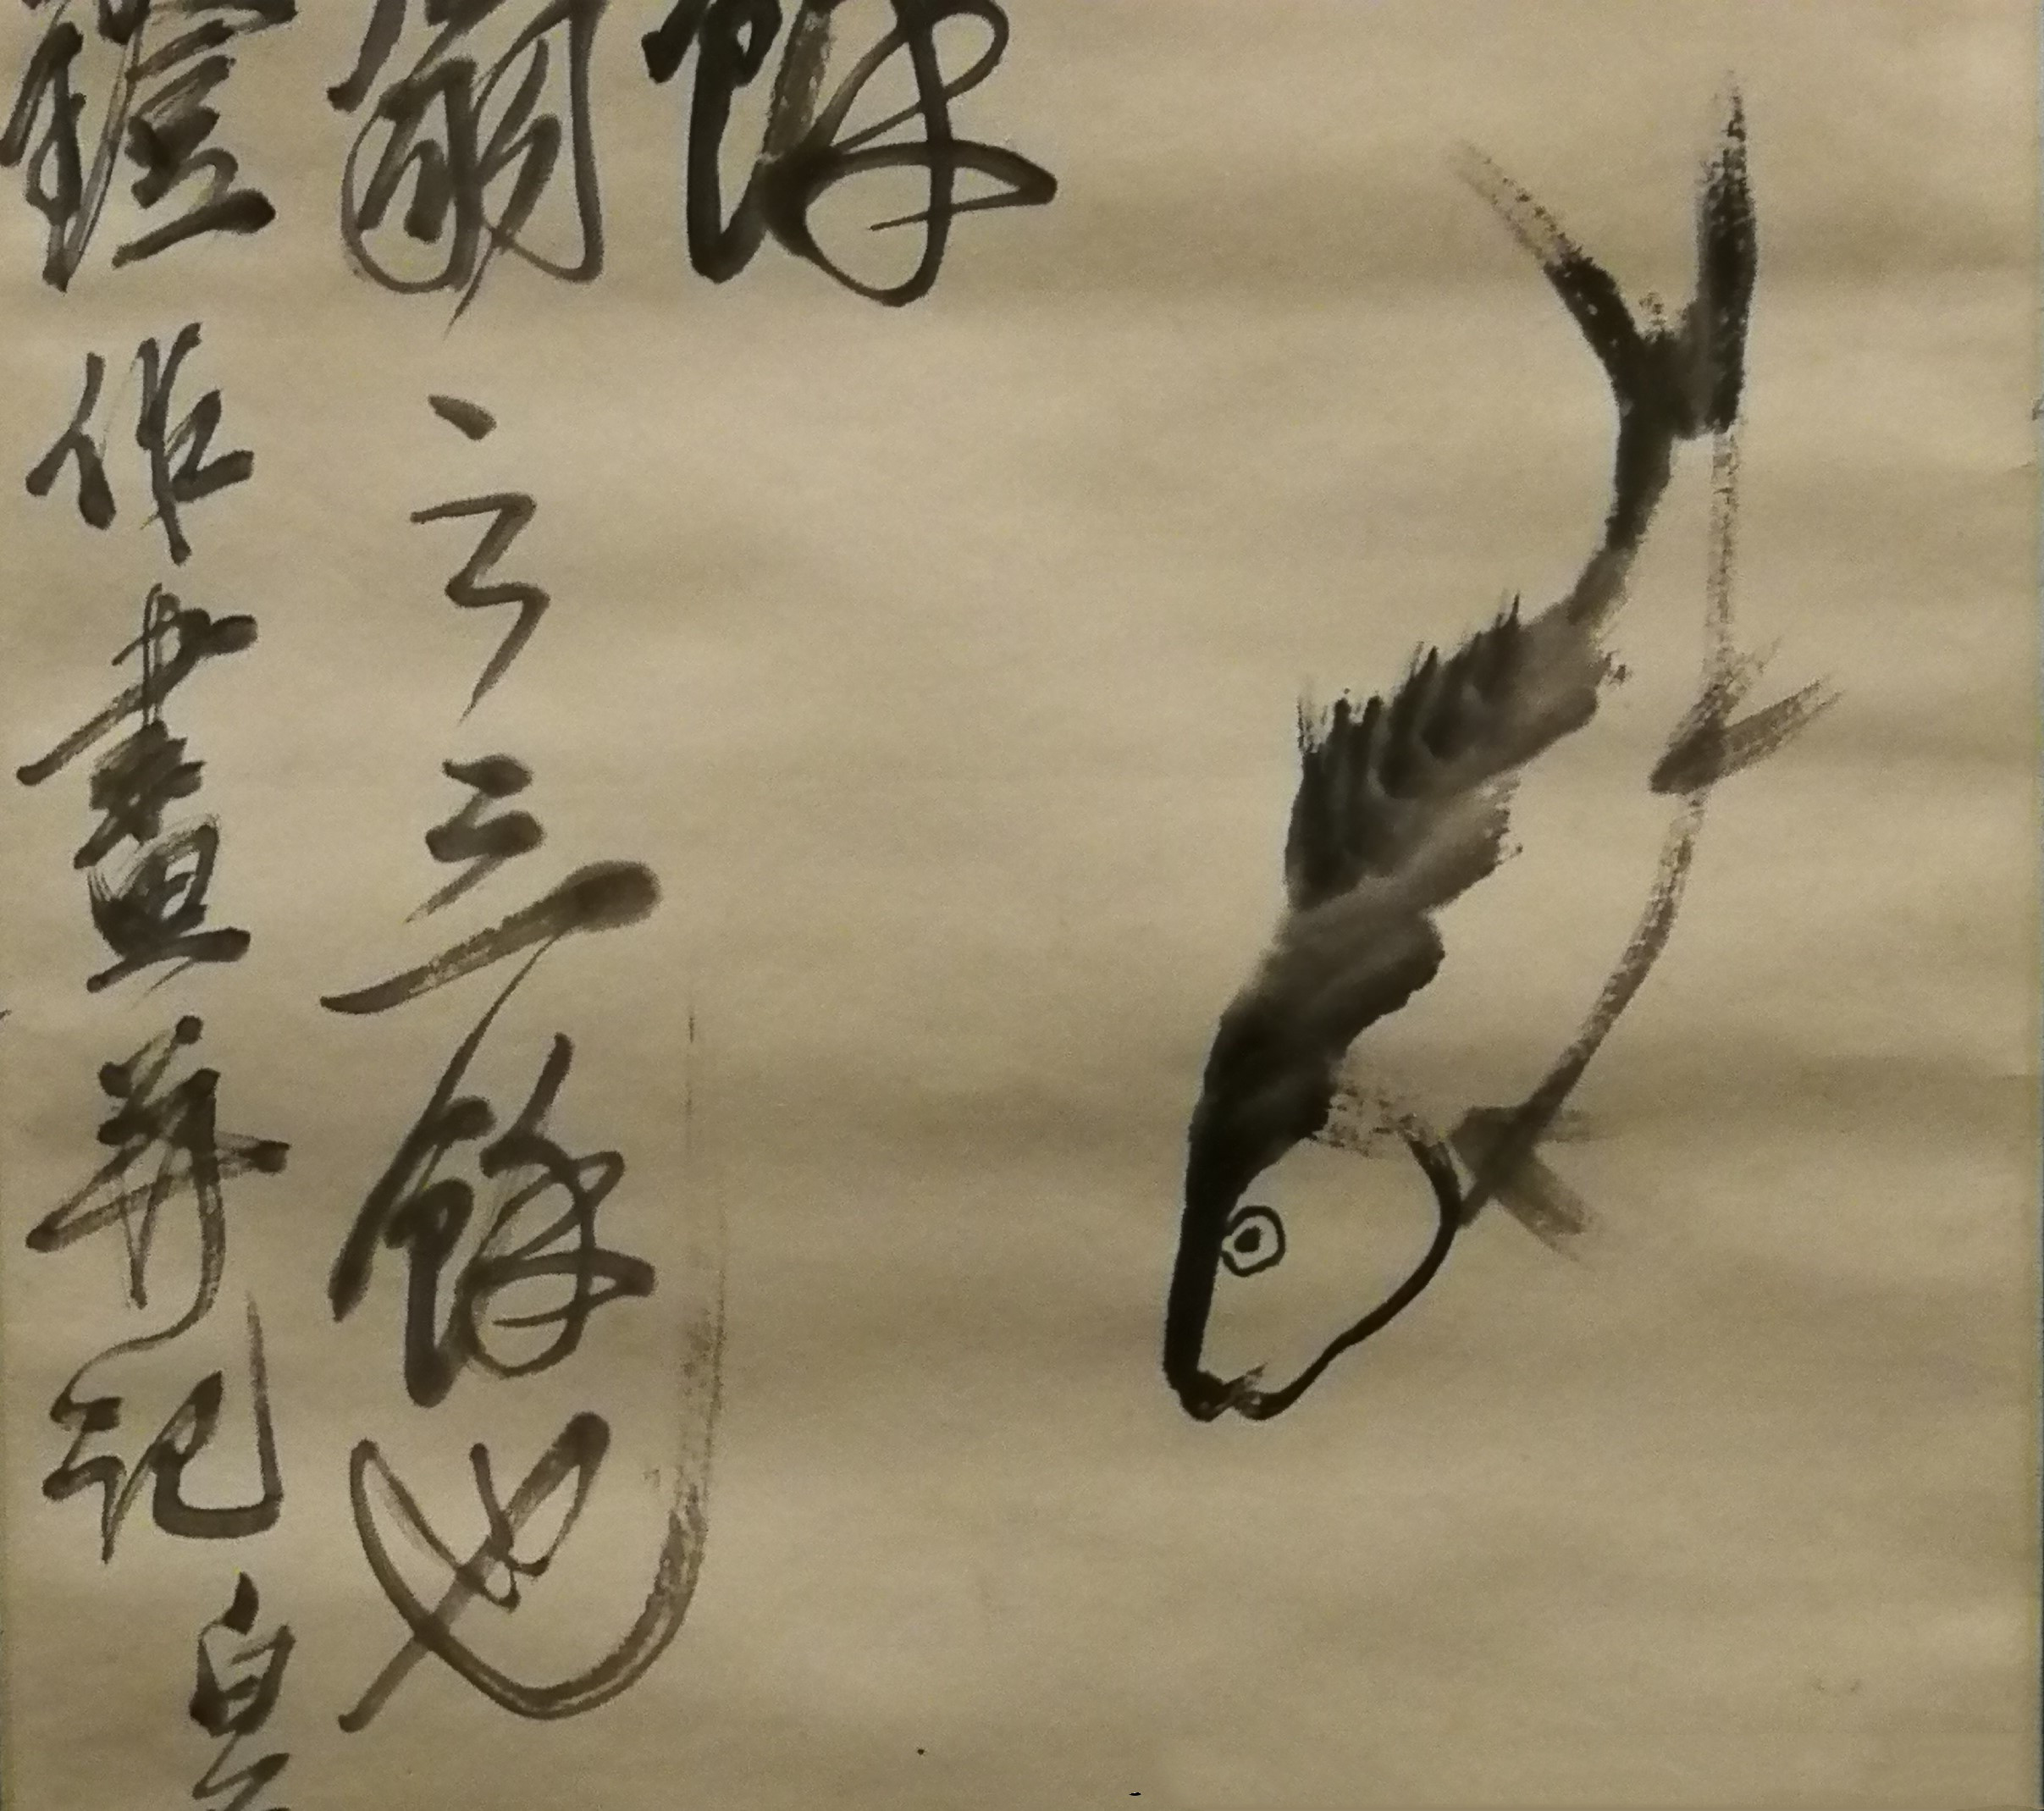 餘
翁之三餘也
鐙作畫并記白